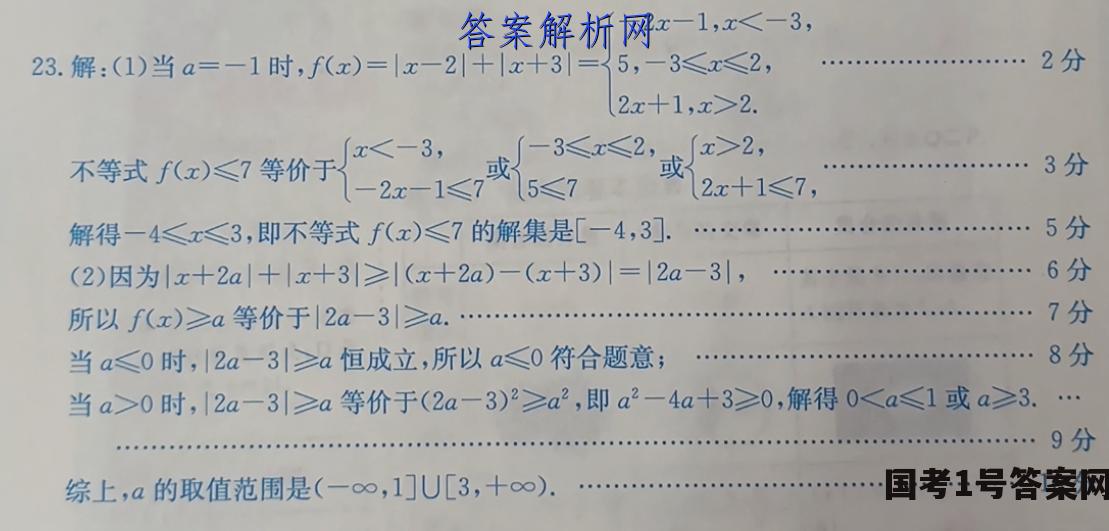 答案解析网
2x-1,x<-3,
23.解:(1)当a=-1时,f(x)=|x-2|+|x+3|={5,-3≤x≤2, …………………… 2分
2x+1,x>2.
不等式f(x)≤7等价于{x<-3, 或{-3≤x≤2, 或{x>2, …………………… 3分
-2x-1≤7 5≤7 2x+1≤7,
解得-4≤x≤3,即不等式f(x)≤7的解集是[-4,3]. …………………… 5分
(2)因为|x+2a|+|x+3|≥|(x+2a)-(x+3)|=|2a-3|, …………………… 6分
所以f(x)≥a等价于|2a-3|≥a. …………………… 7分
当a≤0时,|2a-3|≥a恒成立,所以a≤0符合题意; …………………… 8分
当a>0时,|2a-3|≥a等价于(2a-3)²≥a²,即a²-4a+3≥0,解得0<a≤1或a≥3. …
…………………… 9分
综上,a的取值范围是(-∞,1]∪[3,+∞). ……………………
国考1号答案网